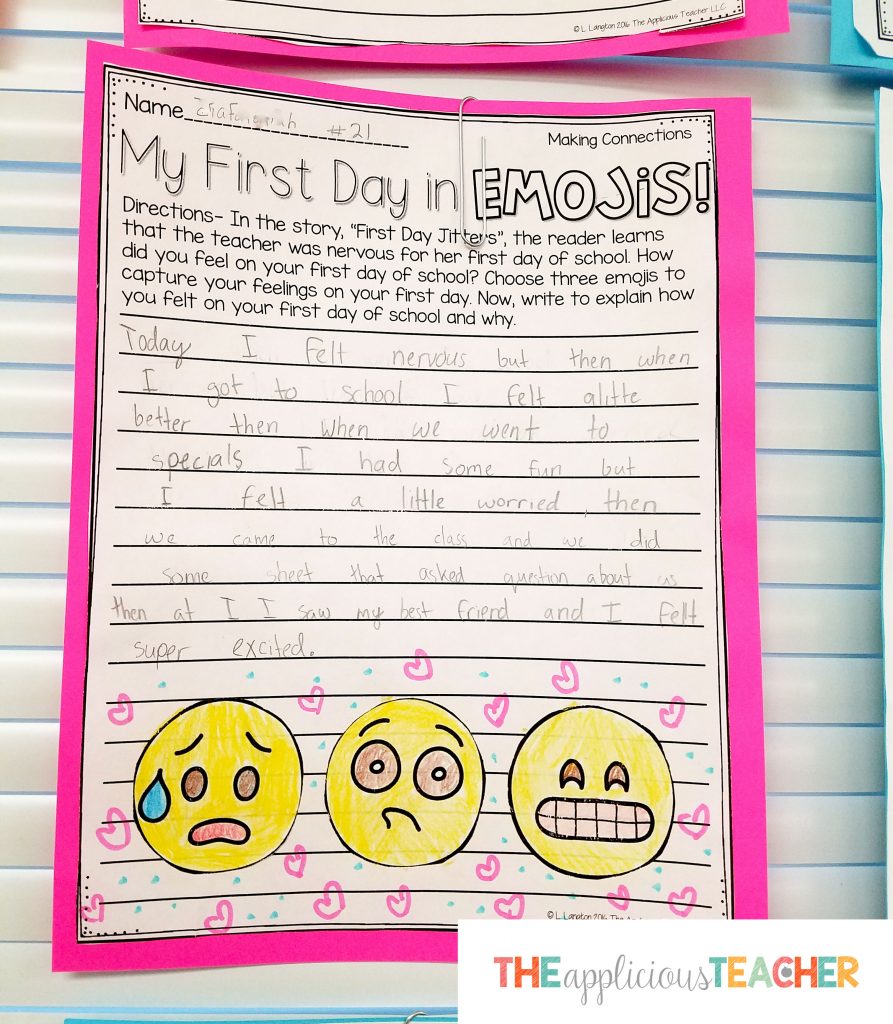 © L. Langton 2016 The Applicious Teacher LLC
Name #21
Making Connections
My First Day in EMOJiS!
Directions- In the story, "First Day Jitters", the reader learns
that the teacher was nervous for her first day of school. How
did you feel on your first day of school? Choose three emojis to
capture your feelings on your first day. Now, write to explain how
you felt on your first day of school and why.
Today I felt nervous but then when
I got to school I felt alitte
better then when we went to
specials I had some fun but
I felt a little worried, then
we came to the class and we did
some sheet that asked question about us
then at I I saw my best friend and I felt
super excited.
© L. Langton 2016 The App
THEappliciousTEACHER